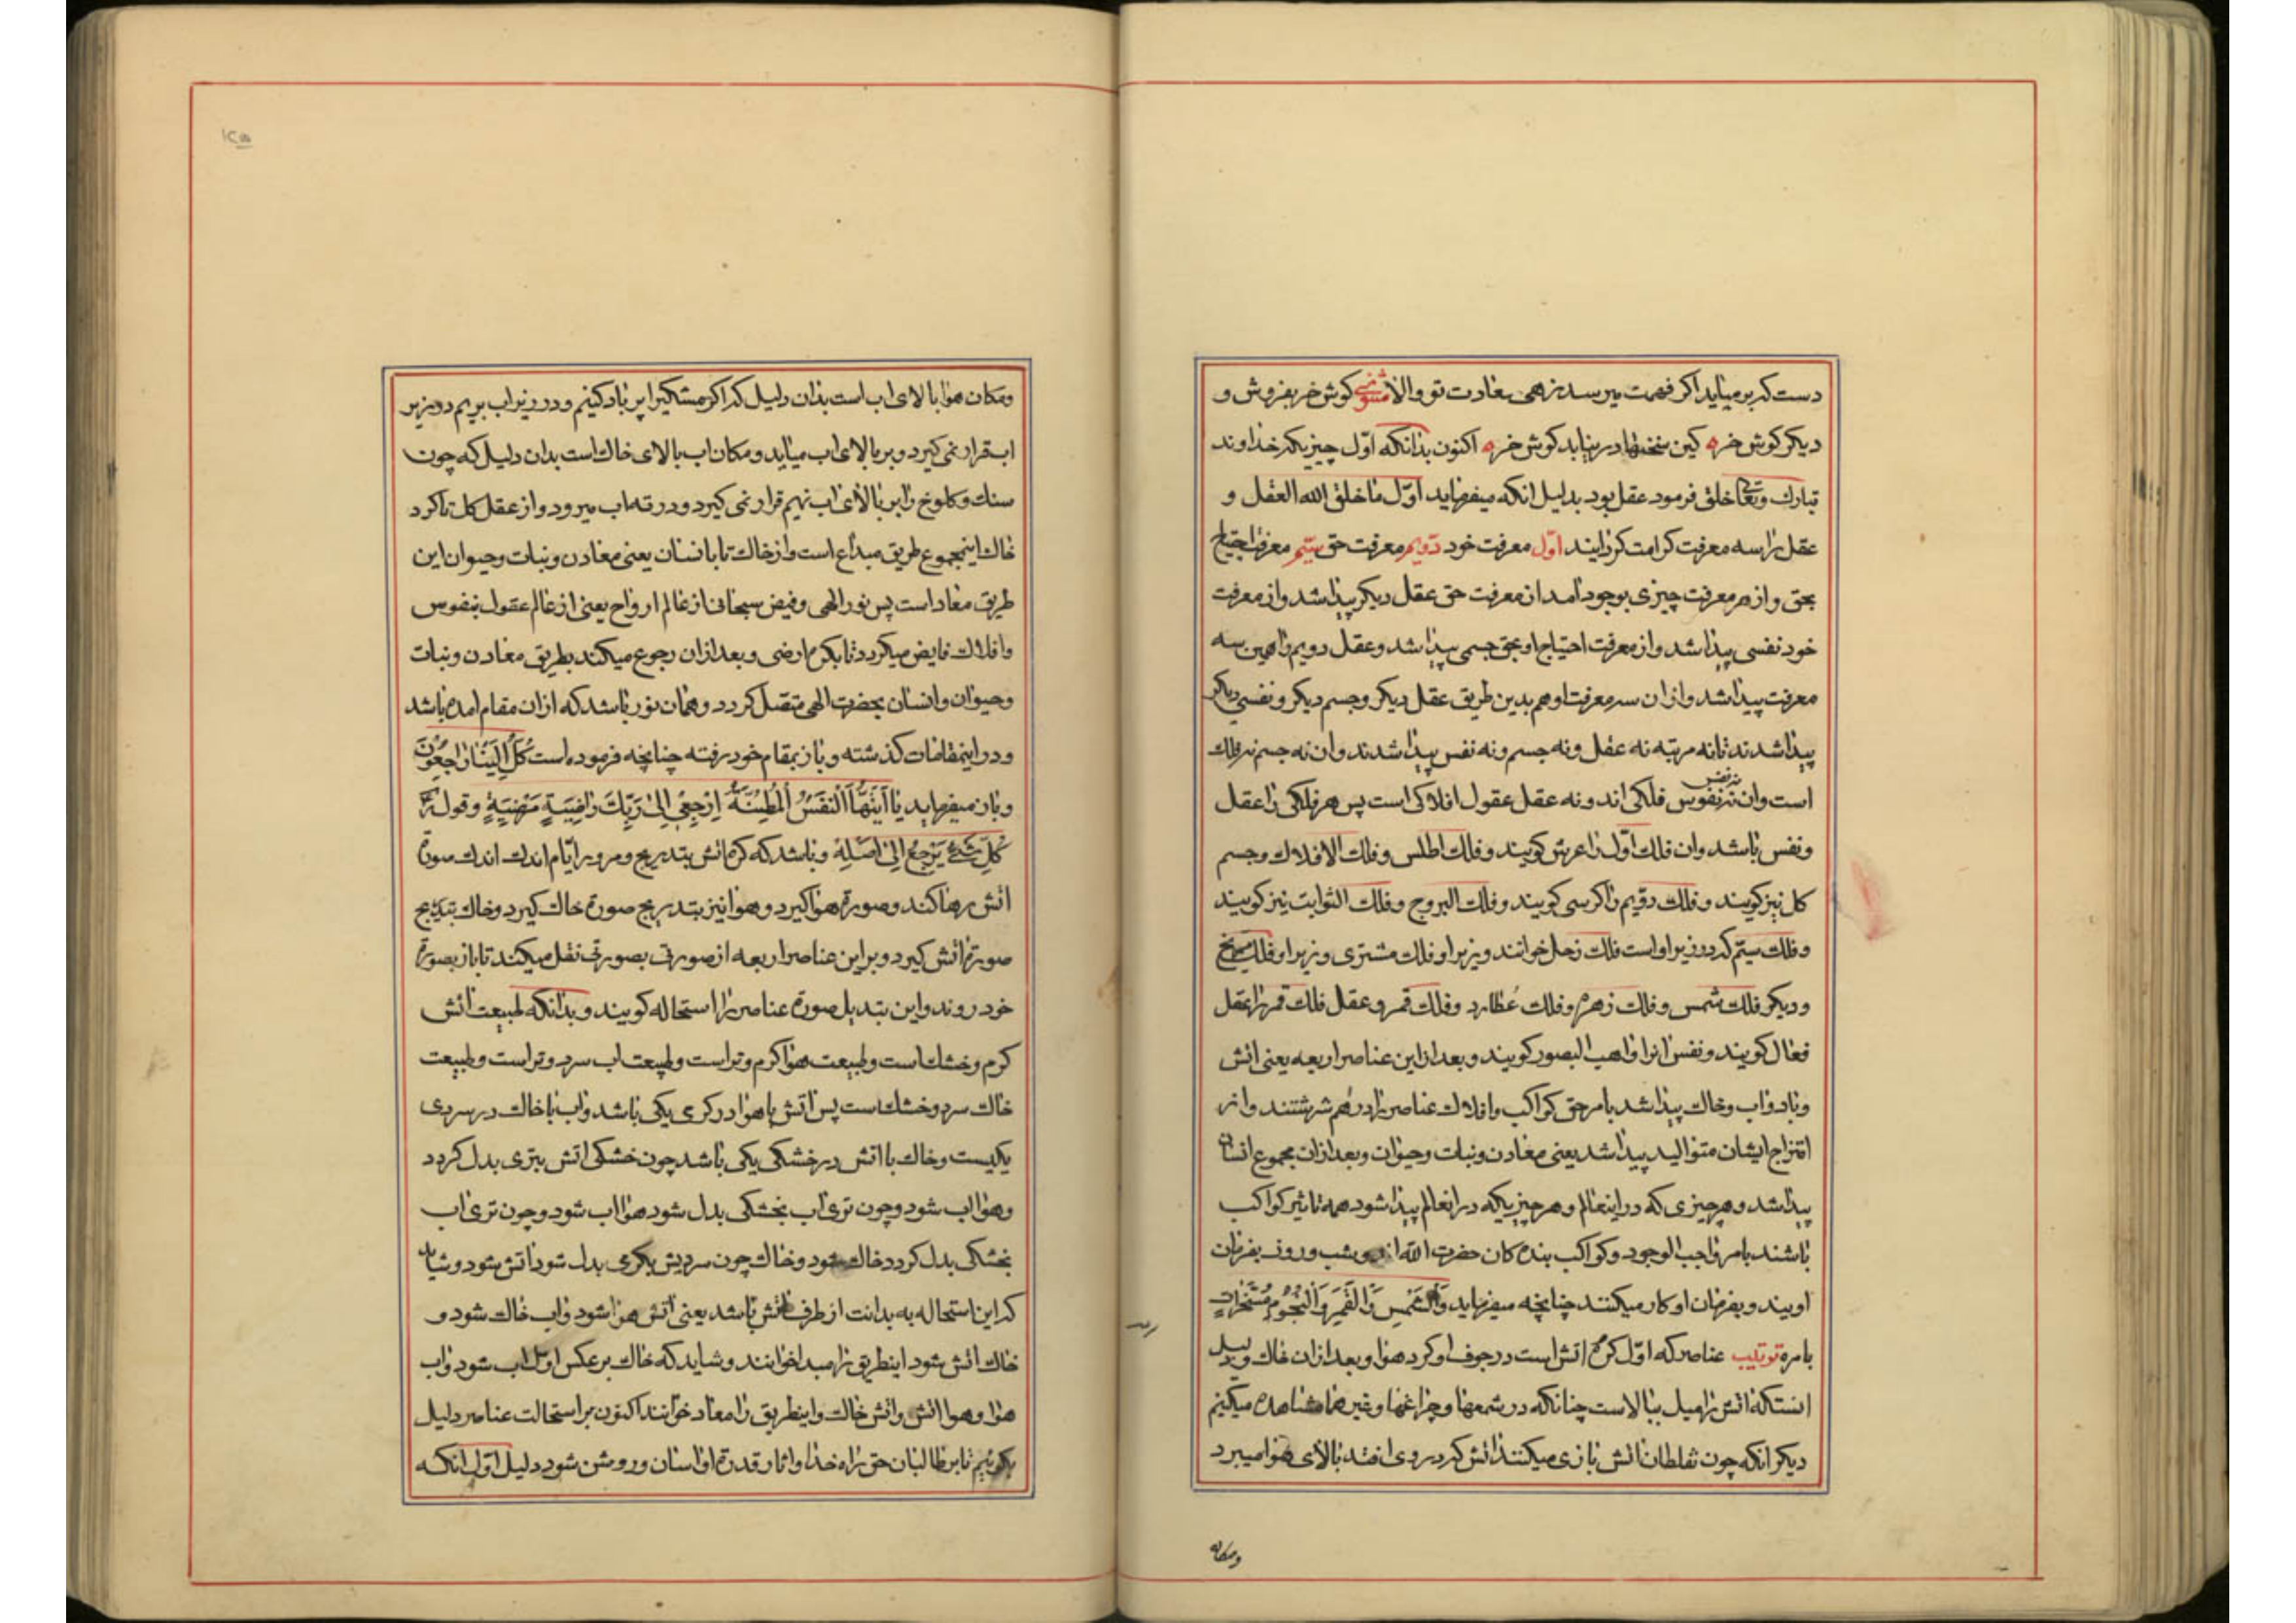 دست که بر میاید اکر فهمت میرسد زهی سعادت تو والا مثنوی کوش خر بفروش و
دیکر کوش خر ه کین سخنها در نیابد کوش خر ه اکنون بدانکه اوّل چیزیکه خداوند
تبارك وتعالی خلق فرمود عقل بود بدلیل انکه میفرماید اوّل ما خلق الله العقل و
عقل را سه معرفت کرامت کردانیند اوّل معرفت خود دویم معرفت حق سیّم معرفت احتیاج
بحق و از هر معرفت چیزی بوجود آمد از معرفت حق عقل دیکر پیدا شد و از معرفت
خود نفسی پیدا شد و از معرفت احتیاج او بحق جسمی پیدا شد و عقل دویم را همین سه
معرفت پیدا شد و از ان سه معرفت او هم بدین طریق عقل دیکر و جسم دیکر و نفسی دیکر
پیدا شدند تا نه مرتبه نه عقل و نه جسم و نه نفس پیدا شدند و ان نه جسم نه فلك
است و ان نه نفس نفوس فلکی اند و نه عقل عقول افلاکی است پس هر فلکی را عقل
و نفس باشد و ان فلك اوّل را عرش کویند و فلك اطلس و فلك الافلاك و جسم
کل نیز کویند و فلك دویّم را کرسی کویند و فلك البروج و فلك الثوابت نیز کویند
و فلك سیّم که در زیر او است فلك زحل خوانند و زیر او فلك مشتری و زیر او فلك مریخ
و دیکر فلك شمس و فلك زهره و فلك عُطارد و فلك قمر و عقل فلك قمر را عقل
فعال کویند و نفس انرا واهب الصور کویند و بعد از این عناصر اربعه یعنی اتش
و باد و اب و خاك پیدا شد بامر حق کواکب و افلاك عناصر را در هم سرشتند و از
امتزاج ایشان متوالید پیدا شد یعنی معادن و نبات و حیوان و بعد از ان مجموع انسان
پیدا شد و هر چیزی که در اینعالم و هر چیزیکه در انعالم پیدا شود همه تاثیر کواکب
باشند بامر واجب الوجود و کواکب بنده کان حضرت الله اند و شب و روز بفرمان
اویند و بفرمان او کار میکنند چنانچه میفرماید وَالشَّمسِ وَالقَمَرِ وَالنُّجُومِ مُسَخَّراتٍ
بامره ترتیب عناصر که اوّل کره اتش است در جوف او کره هوا و بعد از ان خاك و دلیل
انستکه اتش را میل ببالاست چنانکه در شمعها و چراغها و غیر ها مشاهده میکنیم
دیکر انکه چون نفاطان اتش بازی میکنند اتش که در وی افتد بالای هوا میبرد
ومکان
۱۲۵
ومکان هوا بالای اب است بدان دلیل که اکر مشکیرا پر باد کنیم و در زیر اب بریم در زیر
اب قرار نمی کیرد و بر بالای اب میاید و مکان اب بالای خاك است بدان دلیل که چون
سنك و کلوخ را بر بالای اب نهیم قرار نمی کیرد و در ته اب میرود و از عقل کل تا کره
خاك اینمجموع طریق مبداع است و از خاك تا بانسان یعنی معادن و نبات و حیوان این
طریق معاد است پس نور الهی و فیض سبحانی از عالم ارواح یعنی از عالم عقول بنفوس
وافلاك فایض میکردد تا بکره ارضی و بعد از ان رجوع میکند بطریق معادن و نبات
و حیوان و انسان بحضرت الهی متصّل کردد و همان نور باشد که از ان مقام امده باشد
و در اینمقامات کذشته و باز بمقام خود رفته چنانچه فرموده است کُلٌّ اِلَینا راجِعُونَ
و باز میفرماید یا اَیَّتُهَا النَّفسُ المُطمَئِنَّةُ اِرجِعی اِلی رَبِّكَ راضِیَةٍ مَرضِیَةٍ و قوله
کُلّ شَئٍ یَرجِعُ اِلی اَصلِهِ و باشد که کره اتش بتدریج و مرور ایّام اندك اندك صورة
اتش رها کند و صورة هوا کیرد و هوا نیز بتدریج صورة خاك کیرد و خاك بتدریج
صورة اتش کیرد و براین عناصر اربعه از صورتی بصورتی نقل میکنند تا باز بصورة
خود روند و این تبدیل صورة عناصر را استحاله کویند و بدانکه طبیعت اتش
کرم و خشك است و طبیعت هوا کرم و تر است و طبیعت اب سرد و تر است و طبیعت
خاك سرد و خشك است پس اتش با هوا در کرمی یکی باشد و اب با خاك در سردی
یکیست و خاك با اتش در خشکی یکی باشد چون خشکی اتش بتری بدل کردد
و هوا اب شود و چون تری اب بخشکی بدل شود هوا اب شود و چون تری اب
بخشکی بدل کردد خاك شود و خاك چون سردیش بکرمی بدل شود اتش شود و شاید
که این استحاله به بدانت از طرف اتش باشد یعنی اتش هوا شود و اب خاك شود و
خاك اتش شود اینطریق را مبدا خوانند و شاید که خاك بر عکس اول اب شود و اب
هوا و هوا اتش و اتش خاك و اینطریق را معاد خوانند اکنون بر استحالت عناصر دلیل
بکوئیم تا بر طالبان حق راه خدا و اثار قدرة او اسان و روشن شود دلیل اوّل انکه